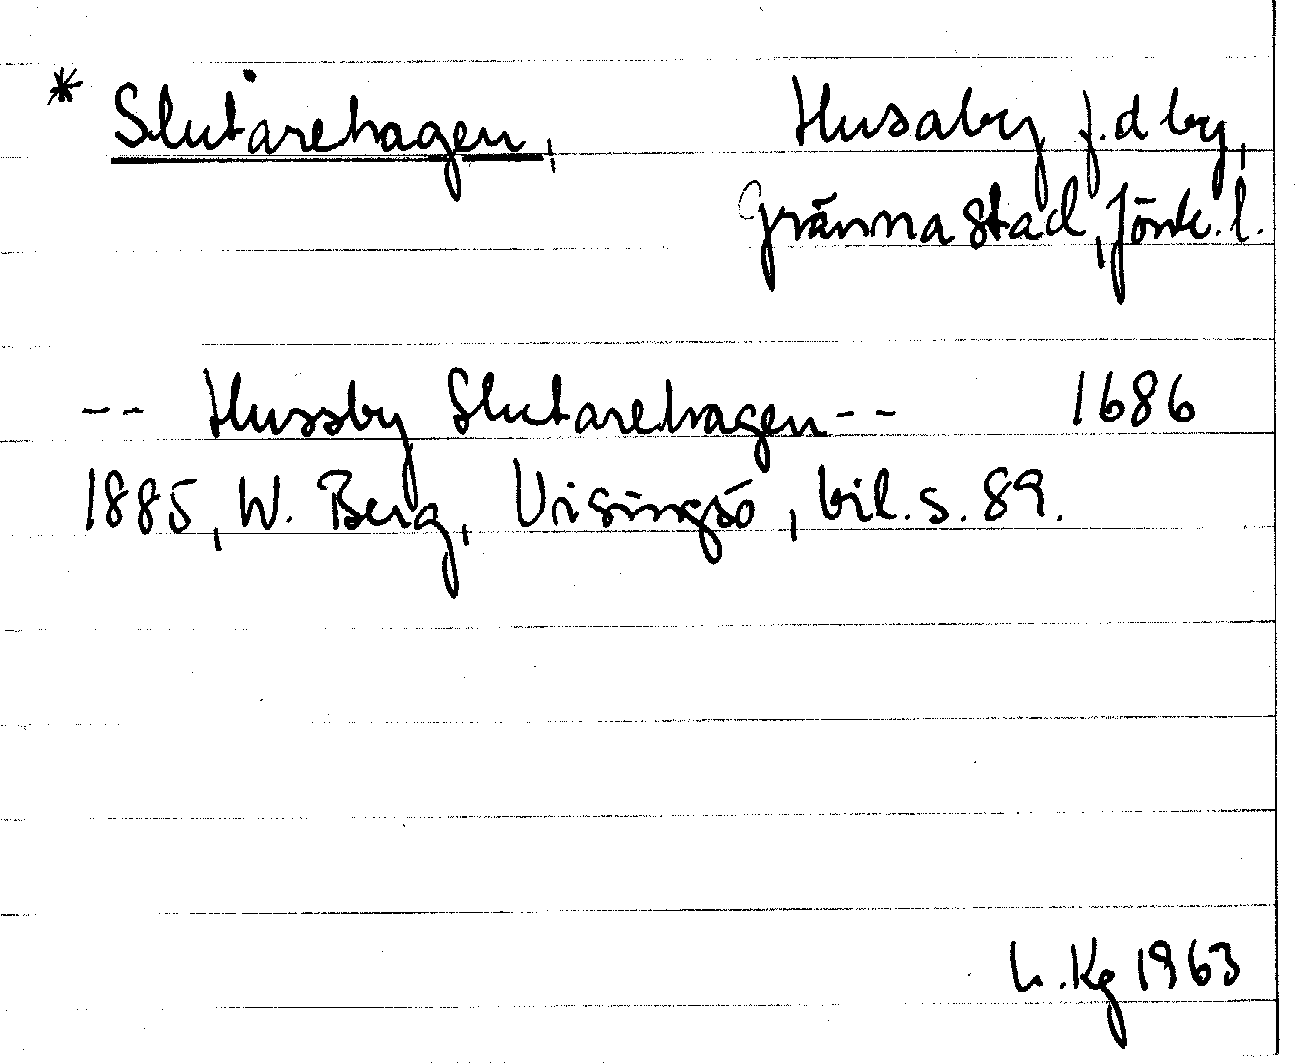 * Slutarehagen, Husaby f.d by,
Gränna stad, Jönk. l.
-- Hussby Slutarehagen -- 1686
1885, W. Berg, Visingsö, bil. s. 89.
h. Kg 1963